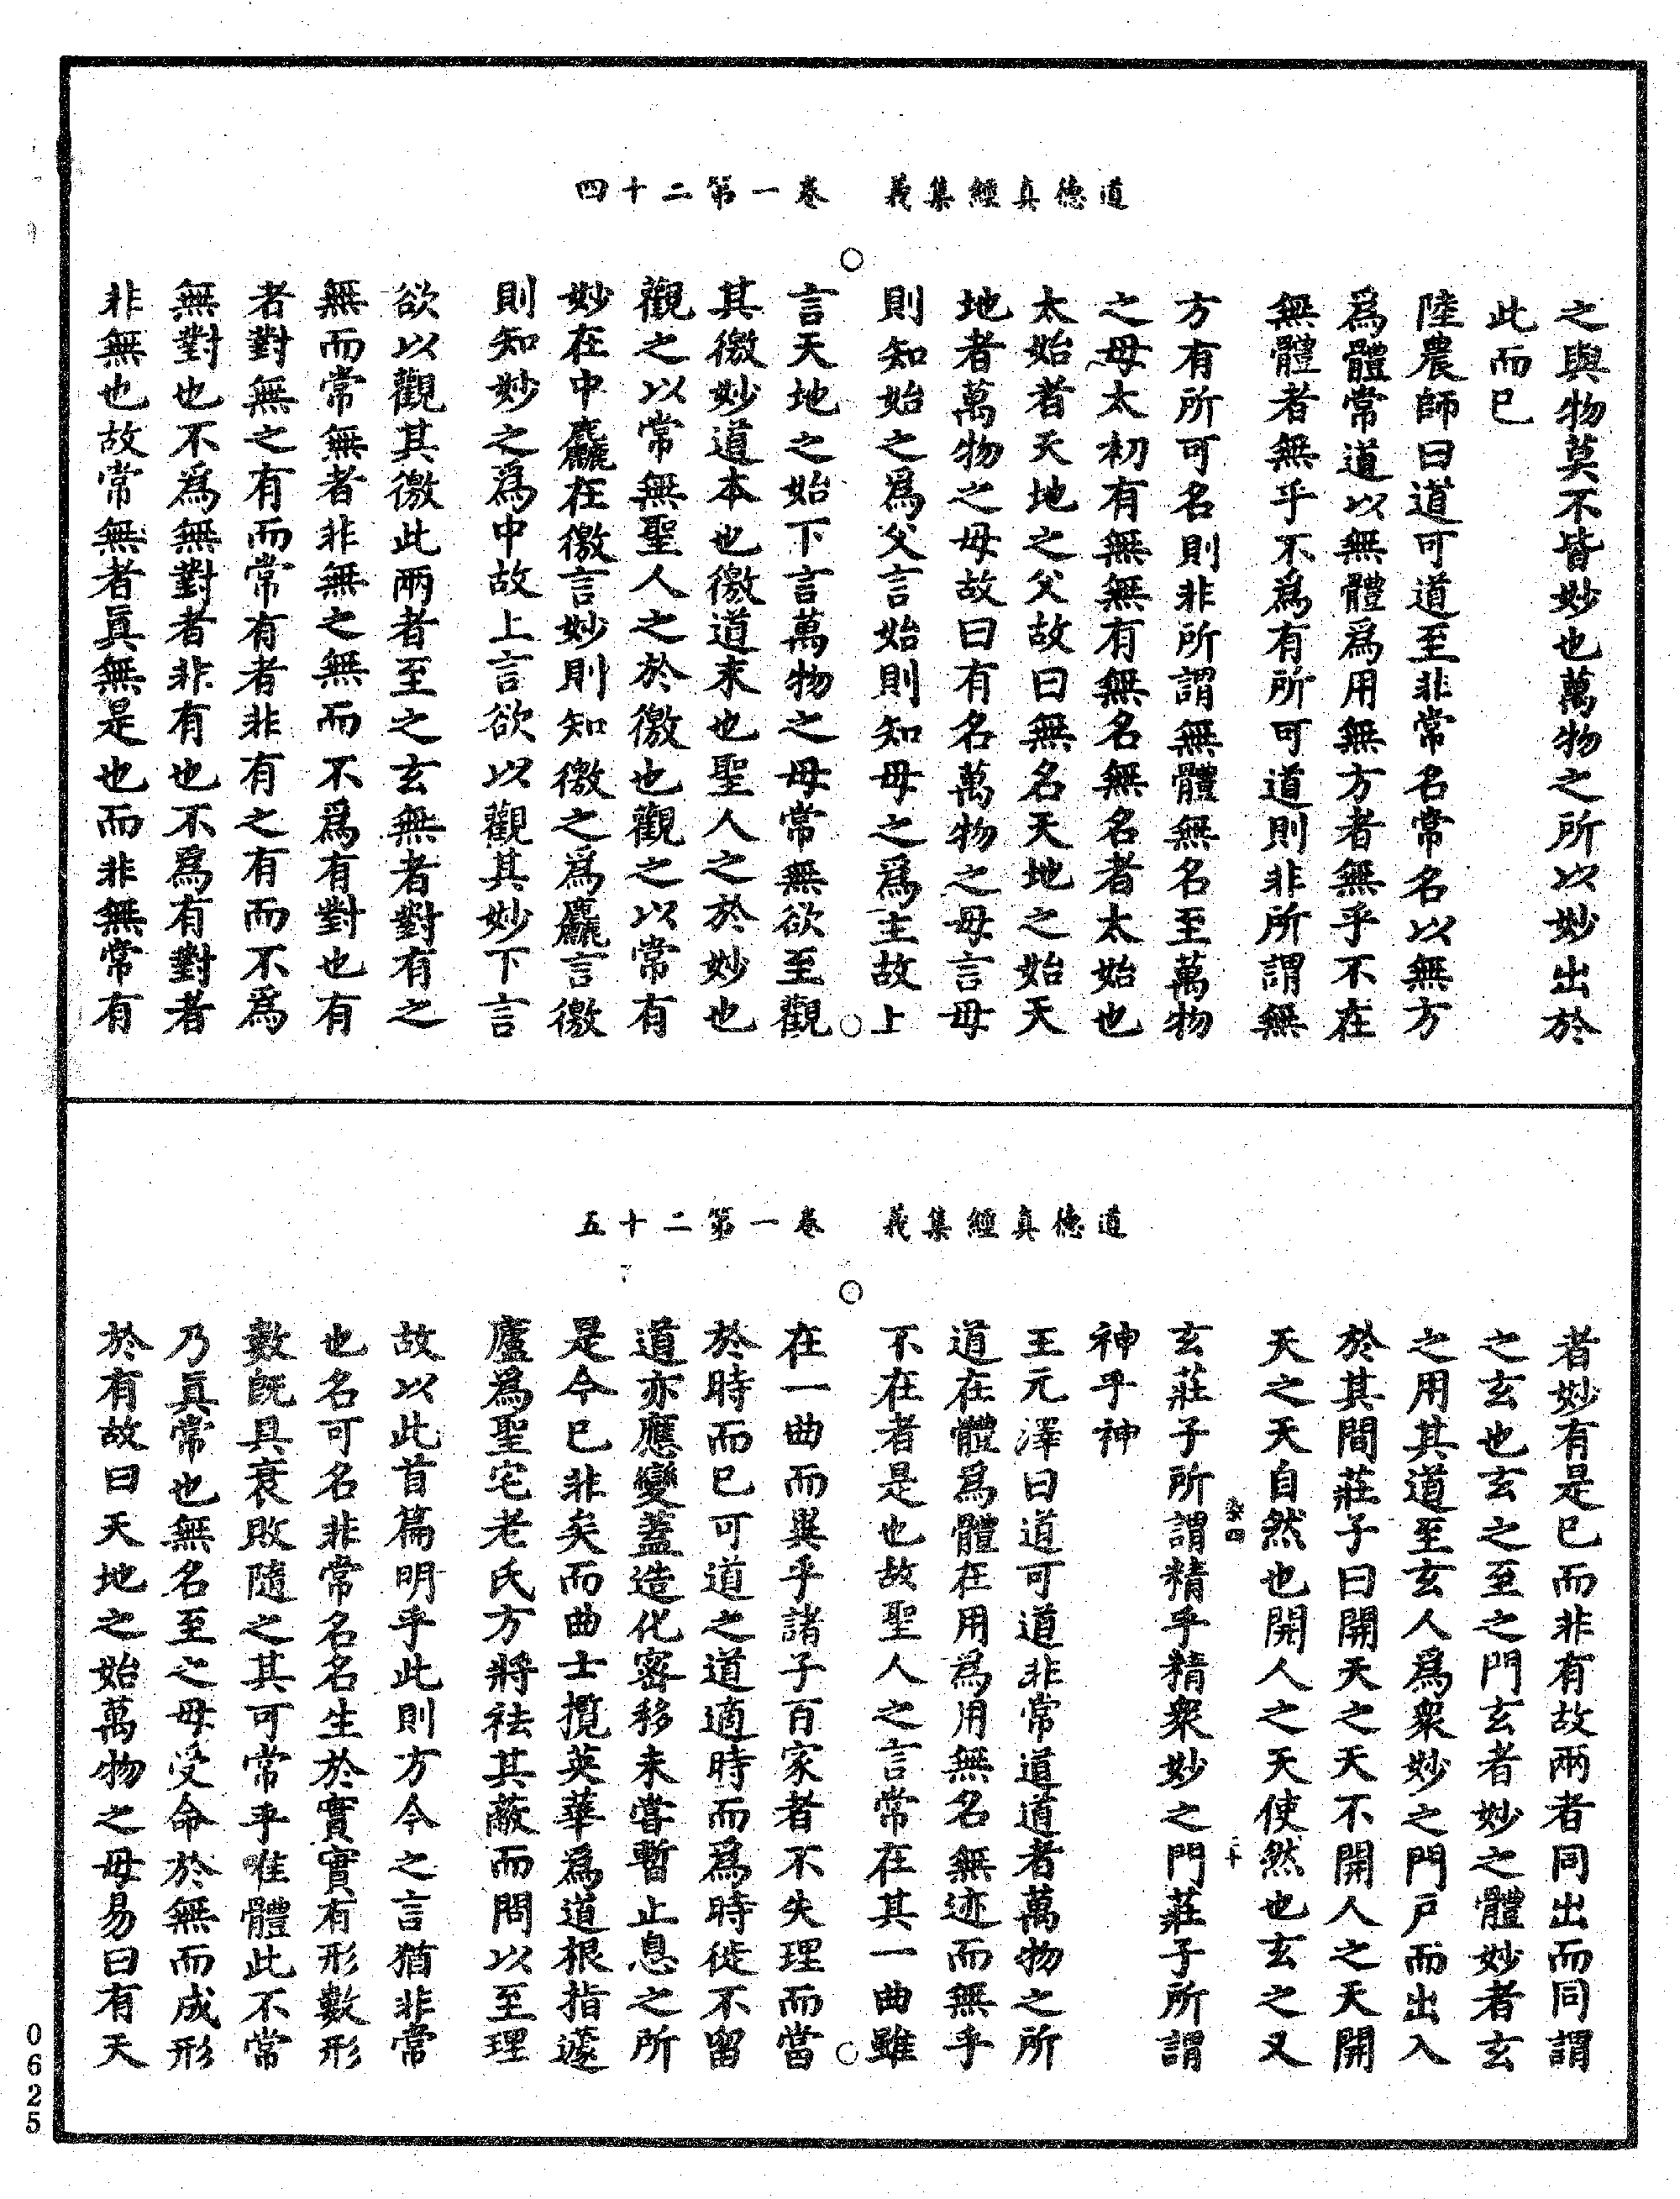 道德真經集義　卷一第二十四
之與物莫不皆妙也萬物之所以妙出於
此而已
陸農師曰道可道至非常名常名以無方
爲體常道以無體爲用無方者無乎不在
無體者無乎不爲有所可道則非所謂無
方有所可名則非所謂無體無名至萬物
之母太初有無無有無名無名者太始也
太始者天地之父故曰無名天地之始天
地者萬物之母故曰有名萬物之母言母
則知始之爲父言始則知母之爲主故上
言天地之始下言萬物之母常無欲至觀
其徼妙道本也徼道末也聖人之於妙也
觀之以常無聖人之於徼也觀之以常有
妙在中麤在徼言妙則知徼之爲麤言徼
則知妙之爲中故上言欲以觀其妙下言
欲以觀其徼此兩者至之玄無者對有之
無而常無者非無之無而不爲有對也有
者對無之有而常有者非有之有而不爲
無對也不爲無對者非有也不爲有對者
非無也故常無者眞無是也而非無常有
道德真經集義　卷一第二十五
者妙有是已而非有故兩者同出而同謂
之玄也玄之至之門玄者妙之體妙者玄
之用其道至玄人爲衆妙之門戶而出入
於其間莊子曰開天之天不開人之天開
天之天自然也開人之天使然也玄之又
玄莊子所謂精乎精衆妙之門莊子所謂
神乎神
王元澤曰道可道非常道道者萬物之所
道在體爲體在用爲用無名無迹而無乎
不在者是也故聖人之言常在其一曲雖
在一曲而異乎諸子百家者不失理而當
於時而已可道之道適時而爲時徙不留
道亦應變蓋造化密移未嘗暫止息之所
是今已非矣而曲士攬英華爲道根指蘧
廬爲聖宅老氏方將祛其蔽而問以至理
故以此首篇明乎此則方今之言猶非常
也名可名非常名名生於實實有形數形
數旣具衰敗隨之其可常乎唯體此不常
乃眞常也無名至之母受命於無而成形
於有故曰天地之始萬物之母易曰有天
0625